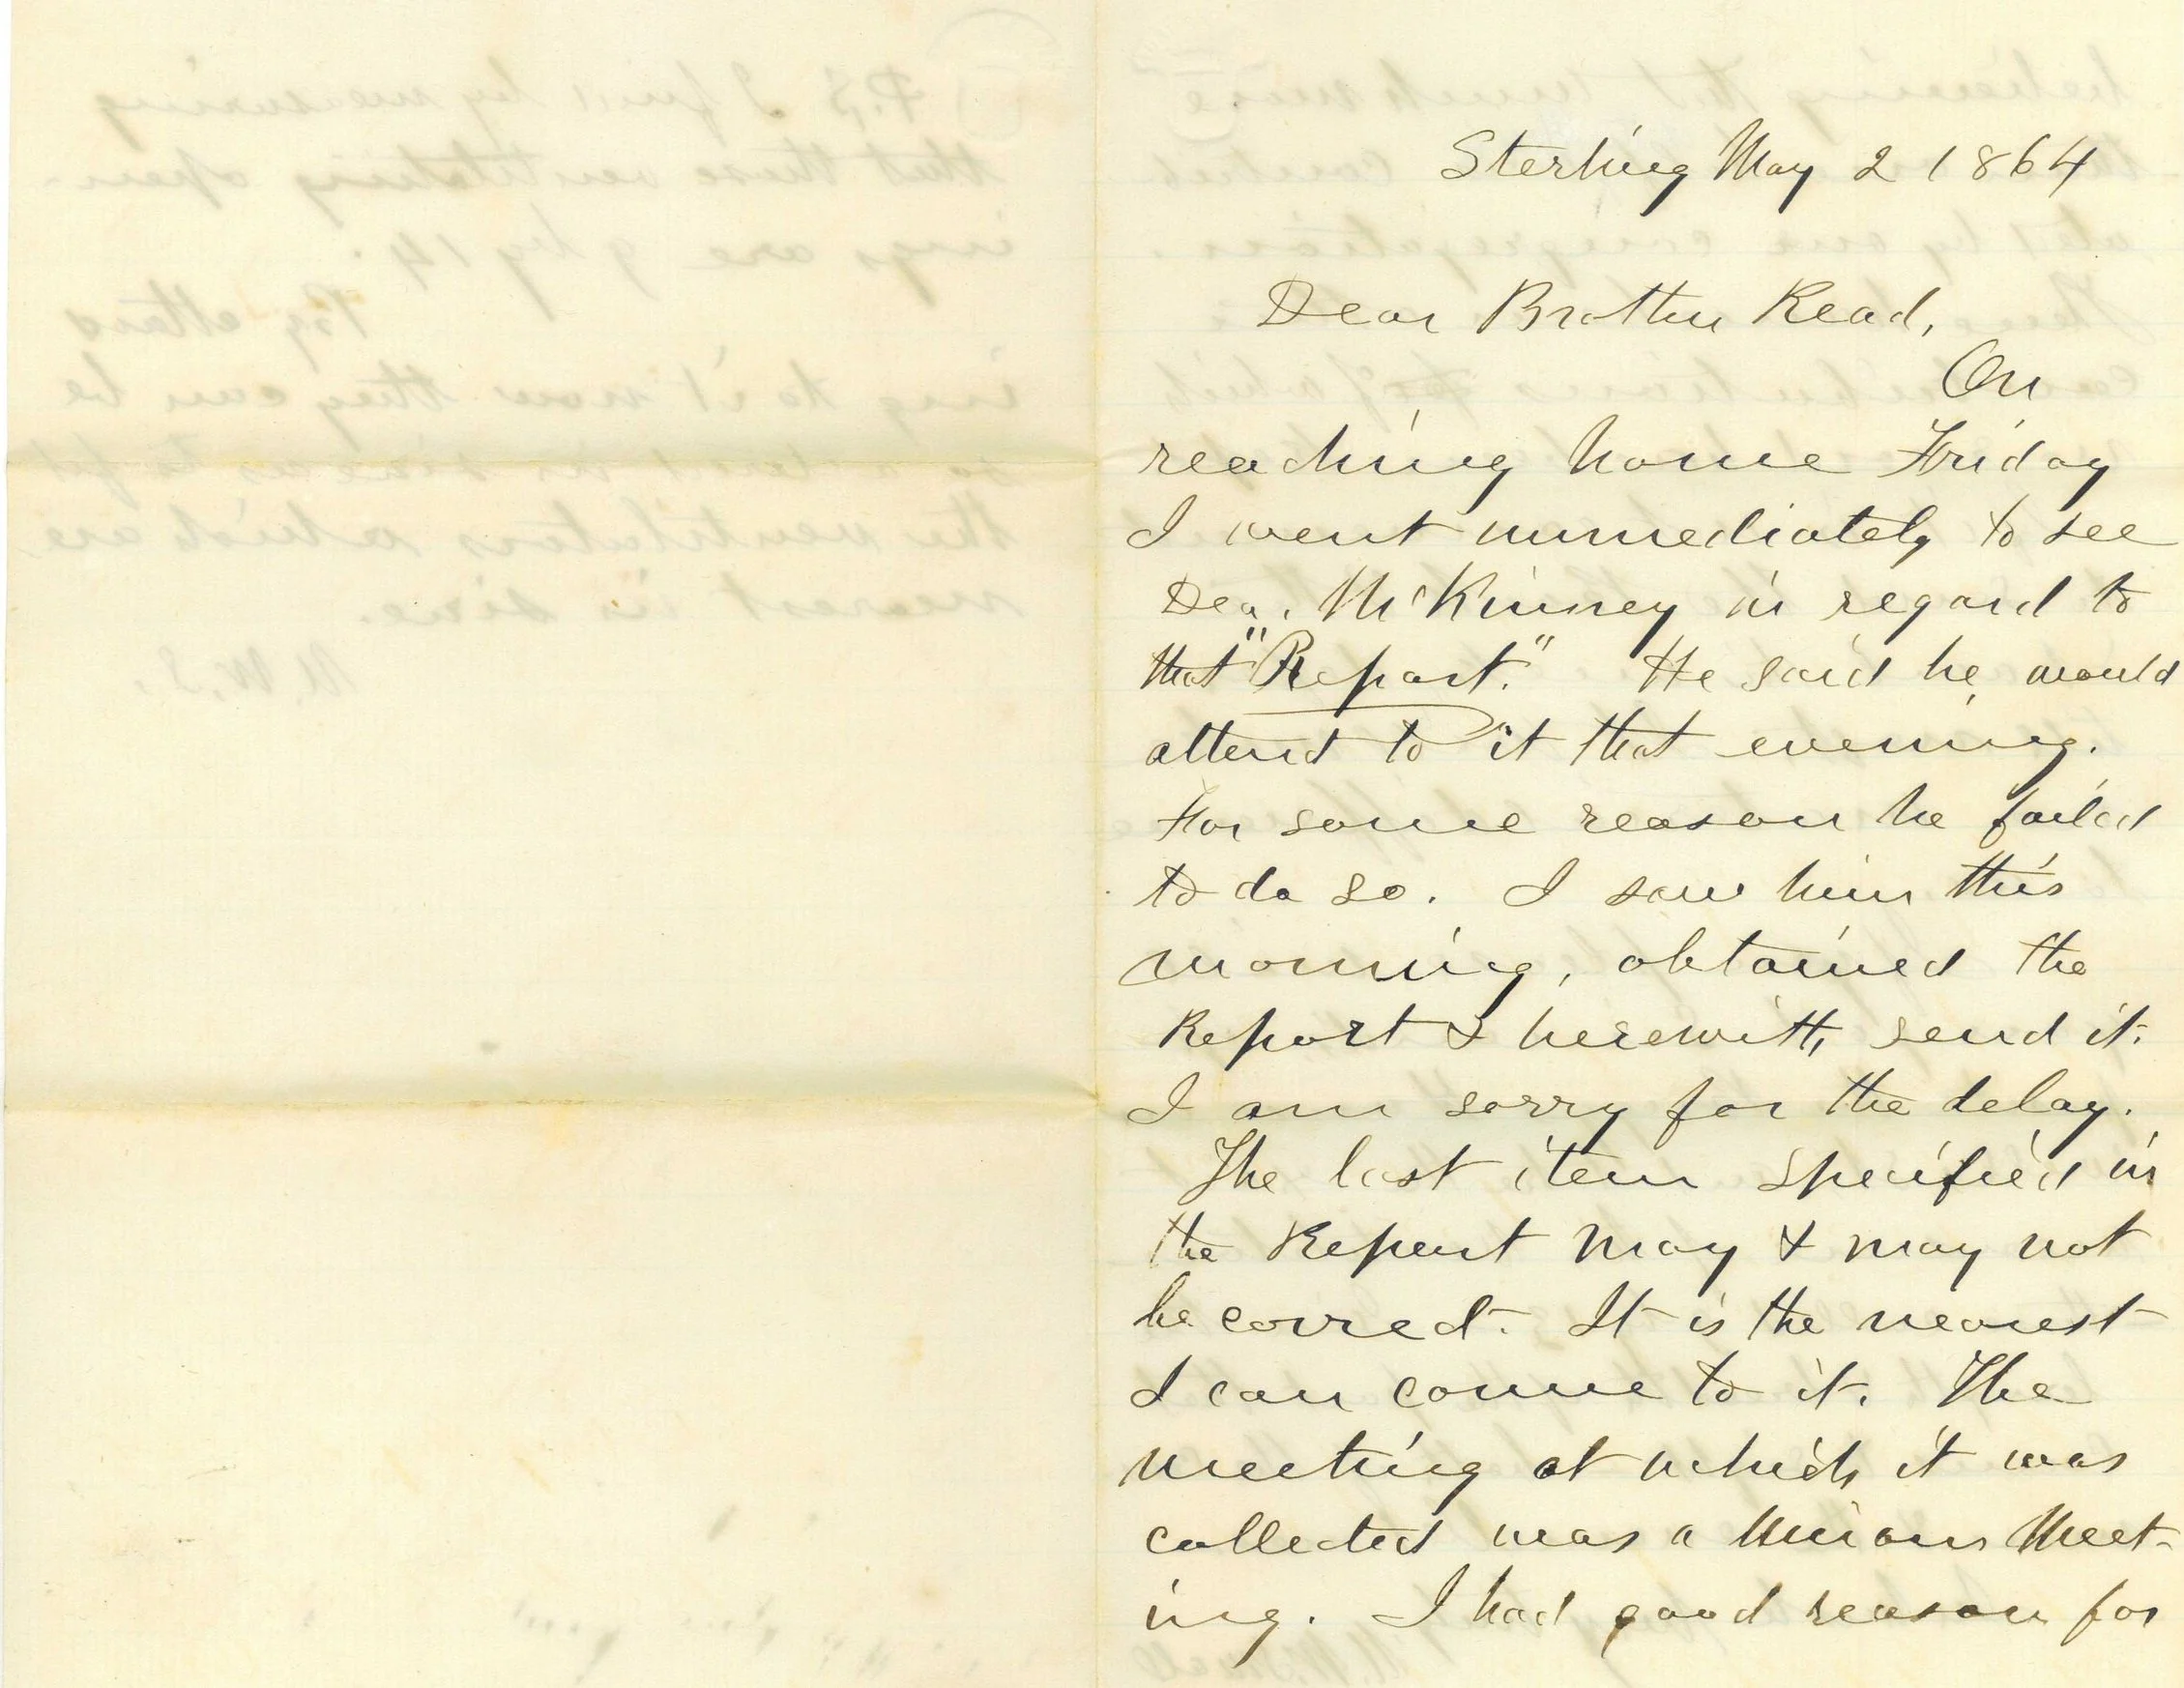 Sterling May 2 1864
Dear Brother Read,
On
reaching home Friday
I went immediately to see
Dea. McKinney in regard to
that "Report." He said he would
attend to it that evening.
For some reason he failed
to do so. I saw him this
morning, obtained the
Report & herewith send it.
I am sorry for the delay.
The last item specified in
the Report may & may not
be correct. It is the nearest
I can come to it. The
meeting at which it was
collected was a Union Meet-
ing. I had good reason for